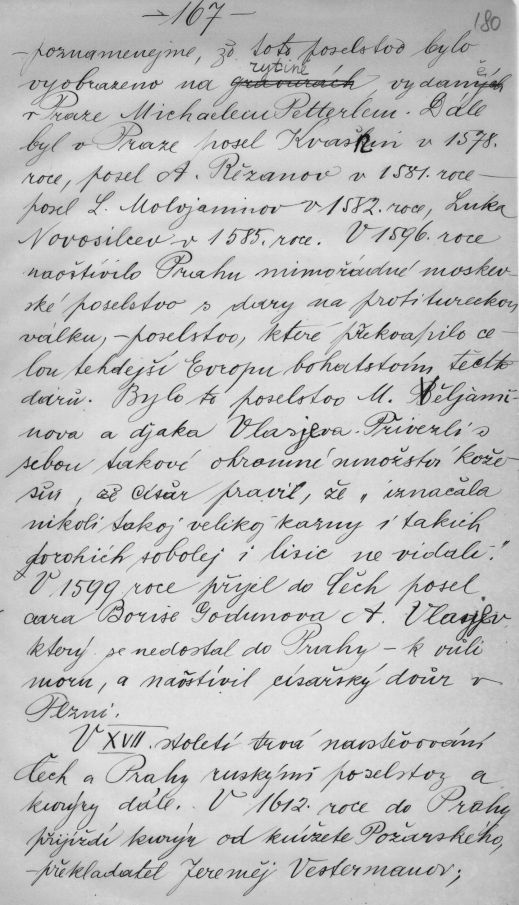 — 167 —
180
– poznamenejme, že toto poselstvo bylo
rytině
vyobrazeno na gravurách vydané
v Praze Michaelem Petterlem. Dále
byl v Praze posel Kvašnin v 1578.
roce, posel A. Rězanov v 1581. roce –
posel L. Molvjaninov v 1582. roce, Luka
Novosilcev v 1585. roce. V 1596. roce
naoštívilo Prahu mimořádné moskev-
ské poselstvo s dary na protitureckou
válku, – poselstvo, které překvapilo ce-
lou tehdejší Evropu bohatstvím těchto
darů. Bylo to poselstvo M. Veljami-
nova a djaka Vlasjeva. Přivezli s
sebou takové ohromné množství kože-
šin, že císař pravil, že „iznačala
nikoli takoj velikoj kazny i takich
dorohich sobolej i lisic ne vidali."
V 1599 roce přijel do Čech posel
cara Borise Godunova A. Vlasjev
který se nedostal do Prahy – k vůli
moru, a naoštívil císařský dvůr v
Plzni.
V XVII. století trvá navštěvování
Čech a Prahy ruskými poselstvy a
kurýry dále. V 1612. roce do Prahy
přijíždí kurýr od knížete Požarského,
– překladatel Jereměj Vestermanov;